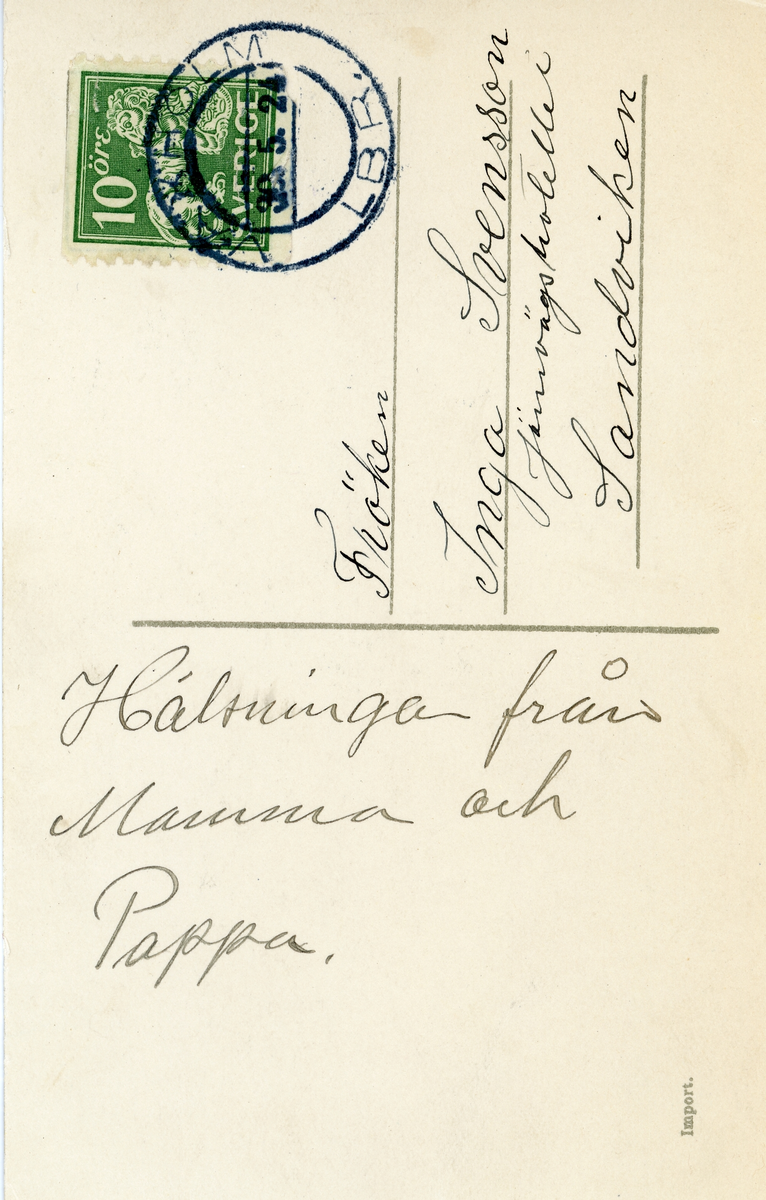 10 öre
SVERIGE
LBR.
5. 24
Fröken
Inga Svensson
Järnvägshotellet
Sandviken
Hälsningar från
Mamma och
Pappa.
Import.